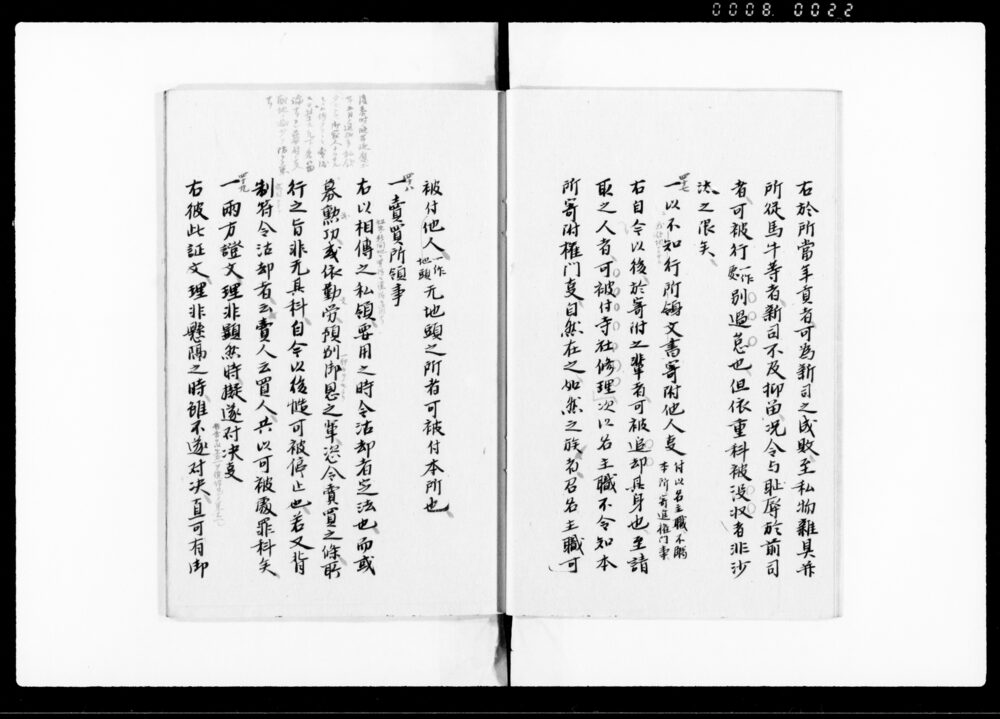 0008 0022
右於所當年貢者可為新司之成敗至私物雜具并
所従馬牛等者新司不及抑留况令与耻辱於前司
者可被行一作處別過怠也但依重科被没収者非沙
汰之限矣
四七
一以不知行所領文書寄附他人事 付以名主職不觸本所寄進権門事
右自今以後於寄附之輩者可被追却其身也至請
取之人者可被付寺社修理次以名主職不令知本
所寄附権門事自然在之如然之族者召名主職可
被付他人一作地頭无地頭之所者可被付本所也
四八
一賣買所領事
右以相傳之私領要用之時令沽却者定法也而或
募勲功或依勤労預別御恩之輩恣令賣買之條所
行之旨非无其科自今以後慥可被停止也若又背
制符令沽却者云賣人云買人共以可被處罪科矣
四九
一兩方證文理非顕然時擬遂対决事
右彼此証文理非懸隔之時雖不遂対决直可有御